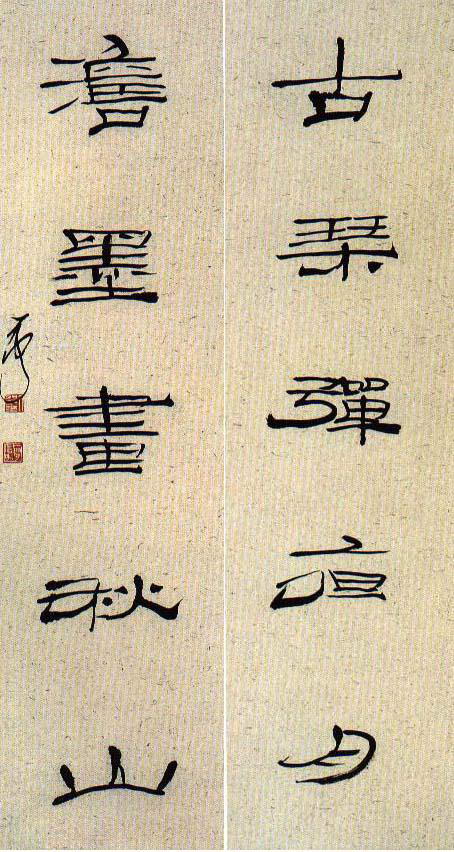 古琴彈亱月
澹墨畫秋山